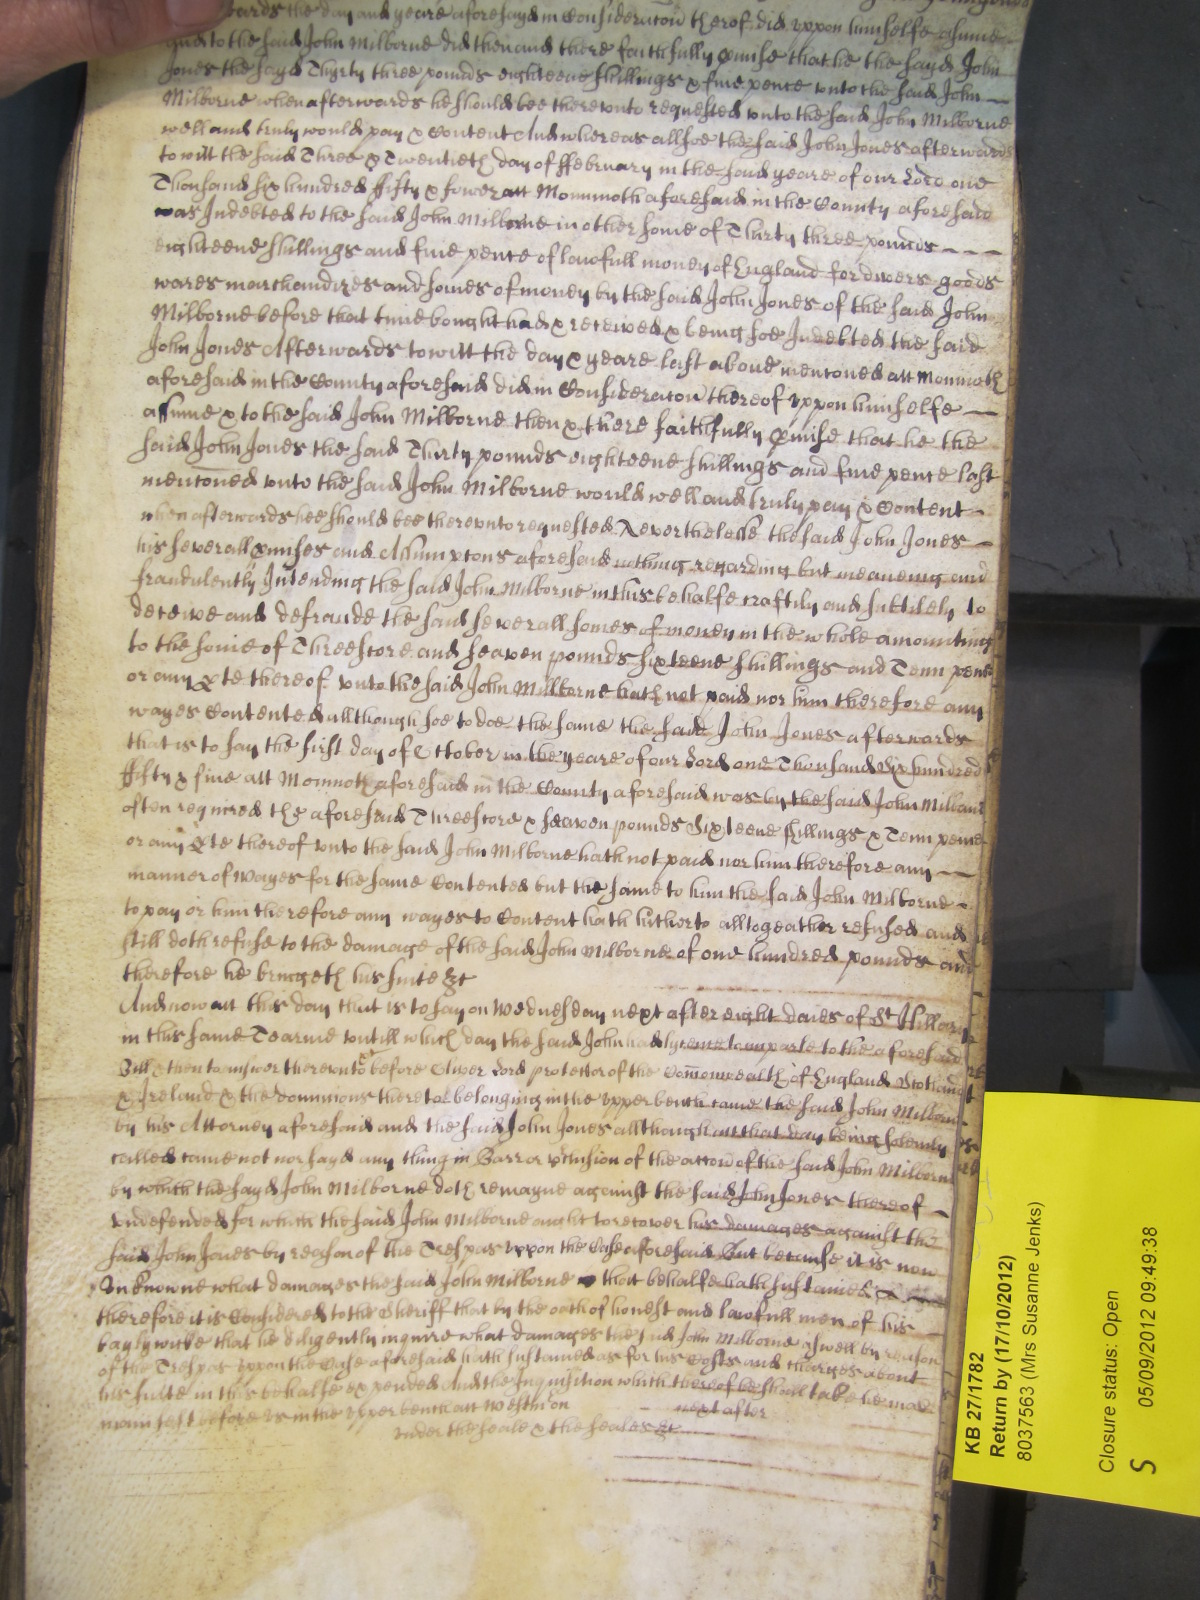 wards the day and yeare aforesayd in Consideracon therof did uppon himselfe assume
and to the said John Milborne did then and there faithfully pmise that he the sayd John
Jones the sayd Thirty three pounds eighteene shillings & five pence unto the said John
Milborne when afterwards he should bee thereunto requested unto the said John Milborne
well and truly would pay & Content And whereas allsoe the said John Jones afterwards
to witt the said Three & Twentieth day of ffebruary in the said yeare of our Lord one
Thousand six hundred ffifty & fower att Monmoth aforesaid in the County aforesaid
was Indebted to the said John Milborne in other some of Thirty three pounds
eighteene shillings and five pence of lawfull money of England for divers goods
wares marchandizes and somes of money by the said John Jones of the said John
Milborne before that time bought had & received & being soe Indebted the said
John Jones Afterwards to witt the day & yeare last above mentoned att Monmoth
aforesaid in the County aforesaid did in Consideracon thereof uppon himselfe
assume & to the said John Milborne then & there faithfully pmise that he the
said John Jones the said Thirty pounds eighteene shillings and five pence last
mentoned unto the said John Milborne would well and truly pay & Content
when afterwards hee should bee thereunto requested Neverthelesse the said John Jones
his severall pmises and Assumptons aforesaid nothing regarding but meaneing and
fraudulently Intending the said John Milborne in this behalfe craftily and subtilely to
deceive and defraude the said severall somes of money in the whole amounting
to the some of Threescore and seaven pounds sixteene shillings and Tenn pence
or any pte thereof unto the said John Milborne hath not paid nor him therefore any
wayes Contented allthough soe to doe the same the said John Jones afterwards
that is to say the first day of October in the yeare of our Lord one Thousand Six hundred
ffifty & five att Monmoth aforesaid in the County aforesaid was by the said John Milborne
often required the aforesaid Threescore & seaven pounds Sixteene shillings & Tenn pence
or any pte thereof unto the said John Milborne hath not paid nor him therefore any
manner of wayes for the same Contented but the same to him the said John Milborne
to pay or him therefore any wayes to Content hath hitherto alltogeather refused and
still doth refuse to the damage of the said John Milborne of one hundred pounds and
therefore he bringeth his suite &c
And now att this day that is to say on Wednesday next after eight daies of St Hillary
in this same Tearme untill which day the said John had lycence to imparle to the aforesaid
Bill & then to answer thereunto &c before Oliver Lord protector of the Comonwealth of England Scotland
& Ireland & the dominions thereto belonging in the upper bench came the said John Milborne
by his Attorney aforesaid and the said John Jones allthough att that day being solemnly
called came not nor sayd any thing in Barr or pclusion of the accon of the said John Milborne
by which the sayd John Milborne doth remayne against the said John Jones thereof
undefended for which the said John Milborne ought to recover his damages against the
said John Jones by reason of the Trespas uppon the Case aforesaid But because it is now
Unknowne what damages the said John Milborne that behalfe hath sustained
therefore it is Considered to the Sheriff that by the oath of honest and lawfull men of his
baylywicke that he diligently inquire what damages the said John Milborne aswell by reason
of the Trespas uppon the Case aforesaid hath sustained as for his Costs and charges about
his suite in this behalfe expended And the Inquisition which thereof he shall take he make
manifest before us in the upper bench att Westm on next after
under the seale & the seales &c
KB 27/1782
Return by (17/10/2012)
8037563 (Mrs Susanne Jenks)
Closure status: Open
S 05/09/2012 09:49:38